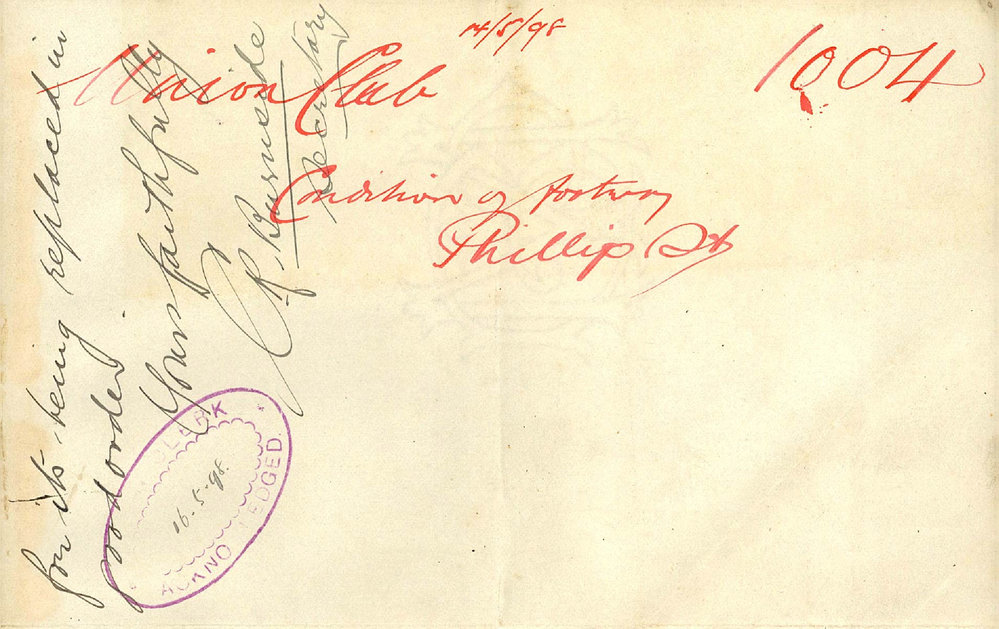 14/5/98
Union Club
1004
Condition of footway
Phillip St
for its being replaced in
good order
Yours faithfully
Burnside
Secretary
CLERK
16.5.98.
ACKNOWLEDGED.